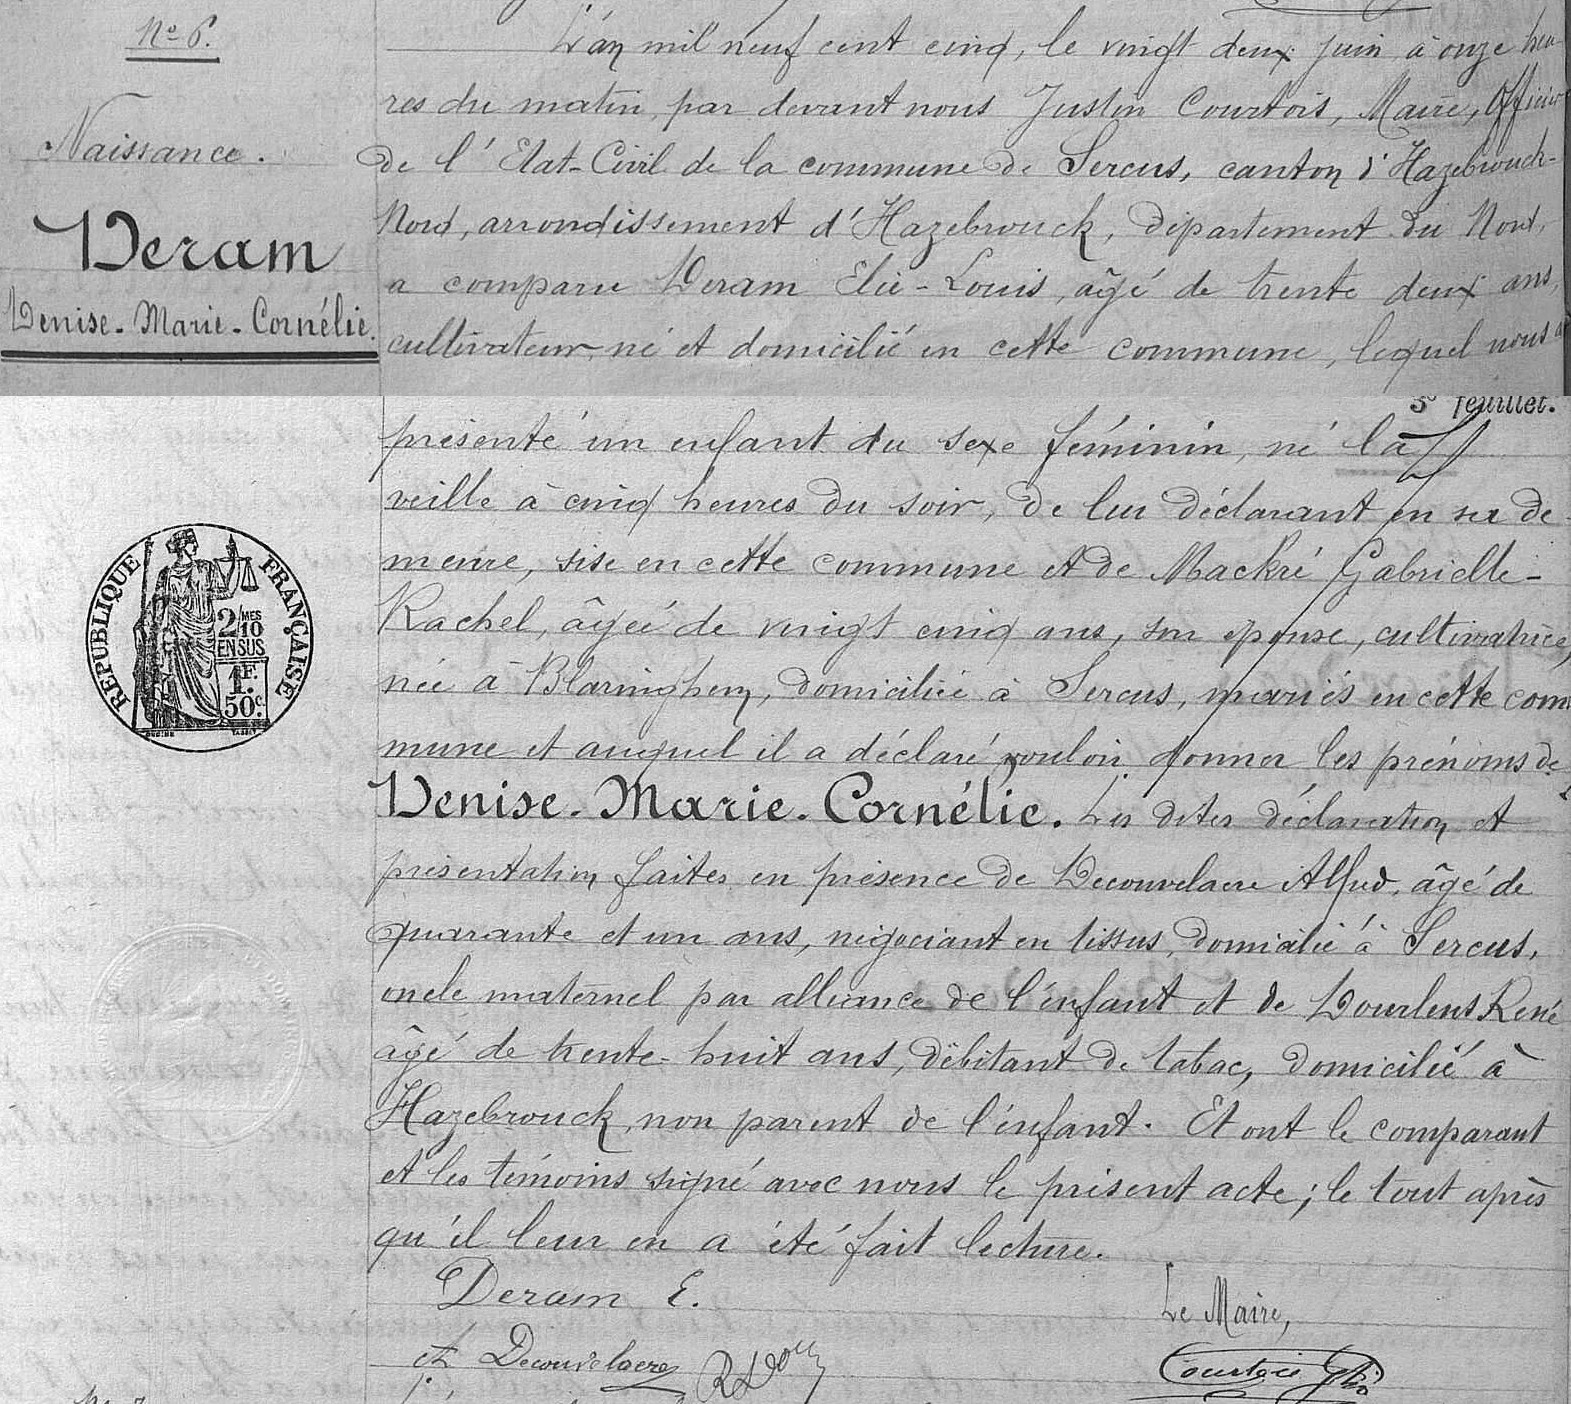 No 6.
Naissance.
Deram
Denise-Marie-Cornélie.
L'an mil neuf cent cinq, le vingt deux juin à onze heu
res du matin, par devant nous Justin Courtois, Maire, Officier
de l'Etat-Civil de la commune de Sercus, canton d'Hazebrouck-
Nord, arrondissement d'Hazebrouck, département du Nord,
a comparu Deram Elie-Louis, âgé de trente deux ans,
cultivateur, né et domicilié en cette commune, lequel nous a
3e feuillet.
présenté un enfant du sexe féminin, né la
veille à cinq heures du soir, de lui déclarant en sa de
meure, sise en cette commune et de Mackré Gabrielle-
Rachel, âgée de vingt cinq ans, son épouse, cultivatrice,
née à Blaringhem, domiciliée à Sercus, mariés en cette com
mune et auquel il a déclaré vouloir donner les prénoms de
Denise-Marie-Cornélie. Les dites déclaration et
présentation faites en présence de Decouvelaere Alfred, âgé de
quarante et un ans, négociant en tissus, domicilié à Sercus,
oncle maternel par alliance de l'enfant et de Dourlens René
âgé de trente-huit ans, débitant de tabac, domicilié à
Hazebrouck, non parent de l'enfant. Et ont le comparant
et les témoins signé avec nous le présent acte; le tout après
qu'il leur en a été fait lecture.
Deram E.
Le Maire,
A. Decouvelaere
Courtois Jtin
RÉPUBLIQUE FRANÇAISE
2/10 MES
EN SUS
1F.
50c.